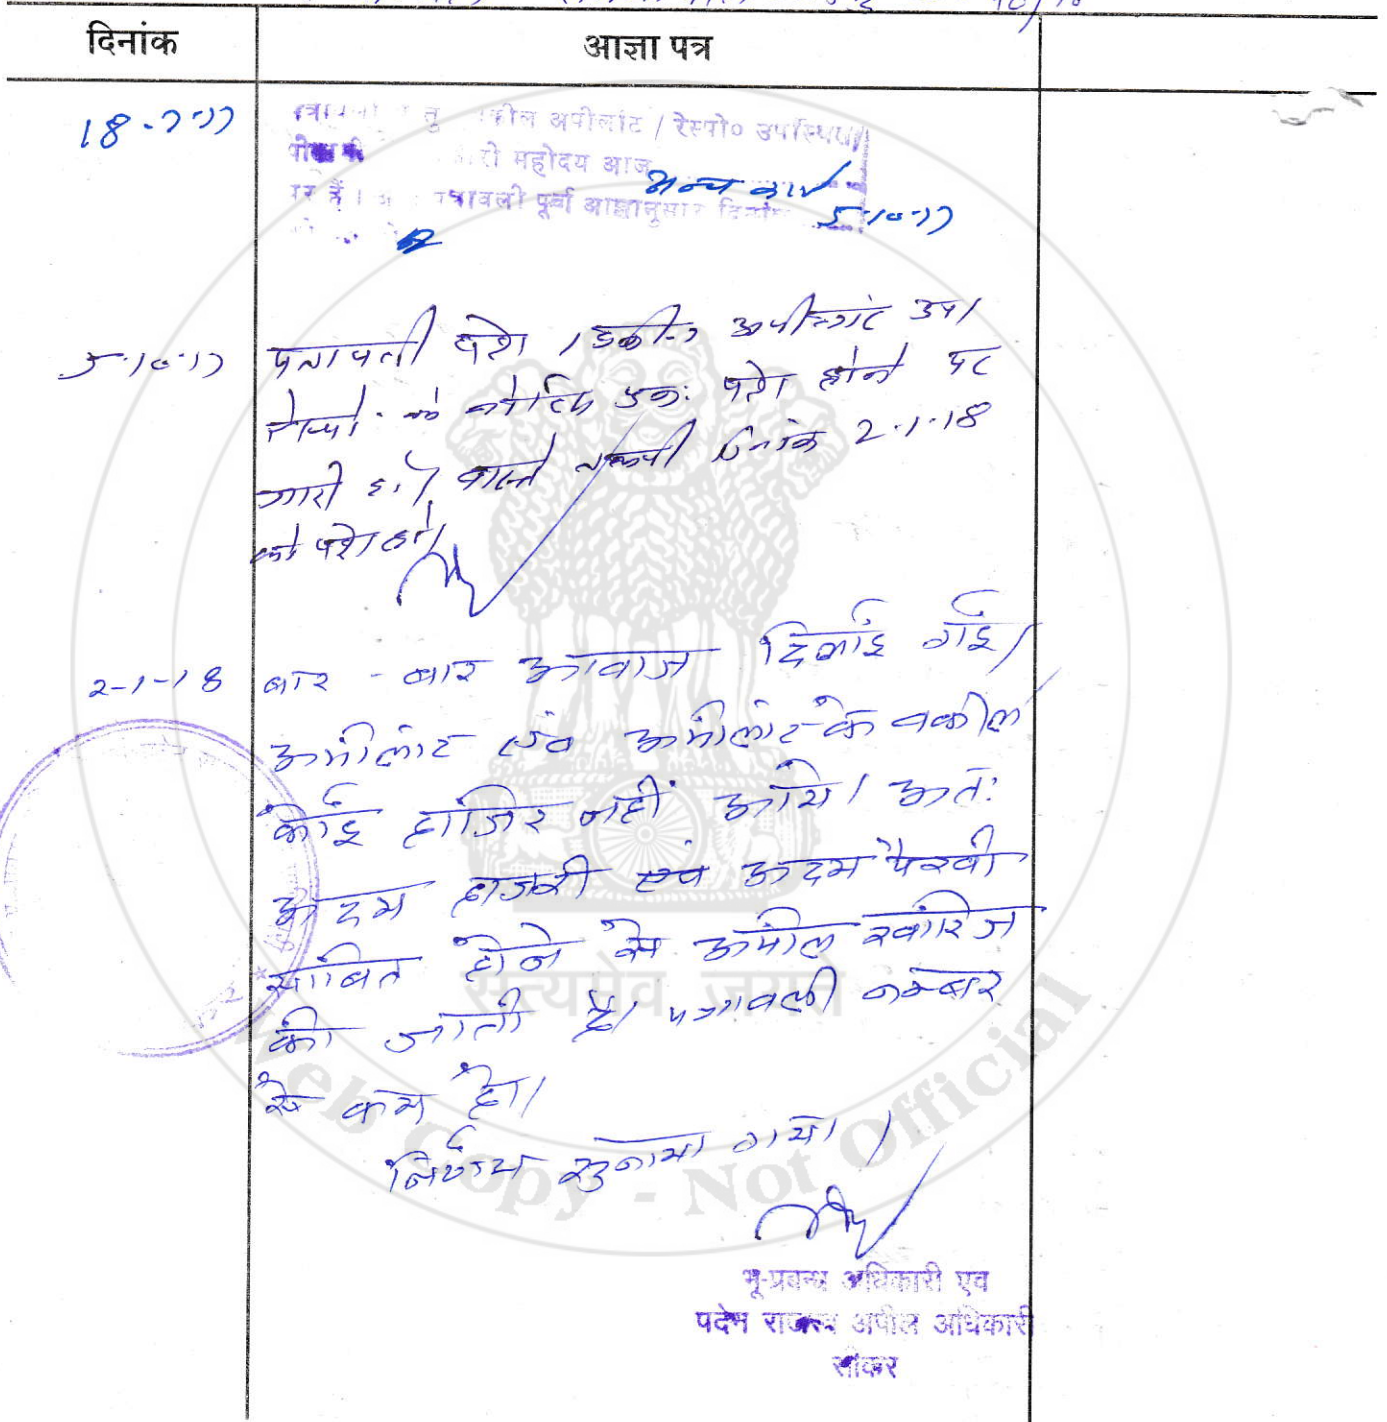 दिनांक
आज्ञा पत्र
18-7-17
वकील अपीलांट / रेस्पो० उपस्थित।
महोदय आज
अन्य कार्य
पत्रावली पूर्व आज्ञानुसार दिनांक 5-10-17
5-10-17 पत्रावली पेश। वकील अपीलांट उप।
रेस्पो. को नोटिस पुनः पेश होने पर
जारी हो। वास्ते तलबी दिनांक 2-1-18
को पेश हो।
2-1-18 बार - बार आवाज दिलाई गई।
अपीलांट एवं अपीलांट के वकील
कोई हाजिर नहीं आये। अतः
अदम हाजरी एवं अदम पैरवी
साबित होने से अपील खारिज
की जाती है। पत्रावली नम्बर
से कम हो।
निर्णय सुनाया गया।
भू-प्रबन्ध अधिकारी एव
पदेन राजस्व अपील अधिकारी
सीकर
सत्यमेव जयते
Web Copy - Not Official